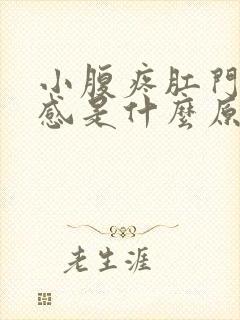 小腹疼肛門
感是什麼原
老生涯